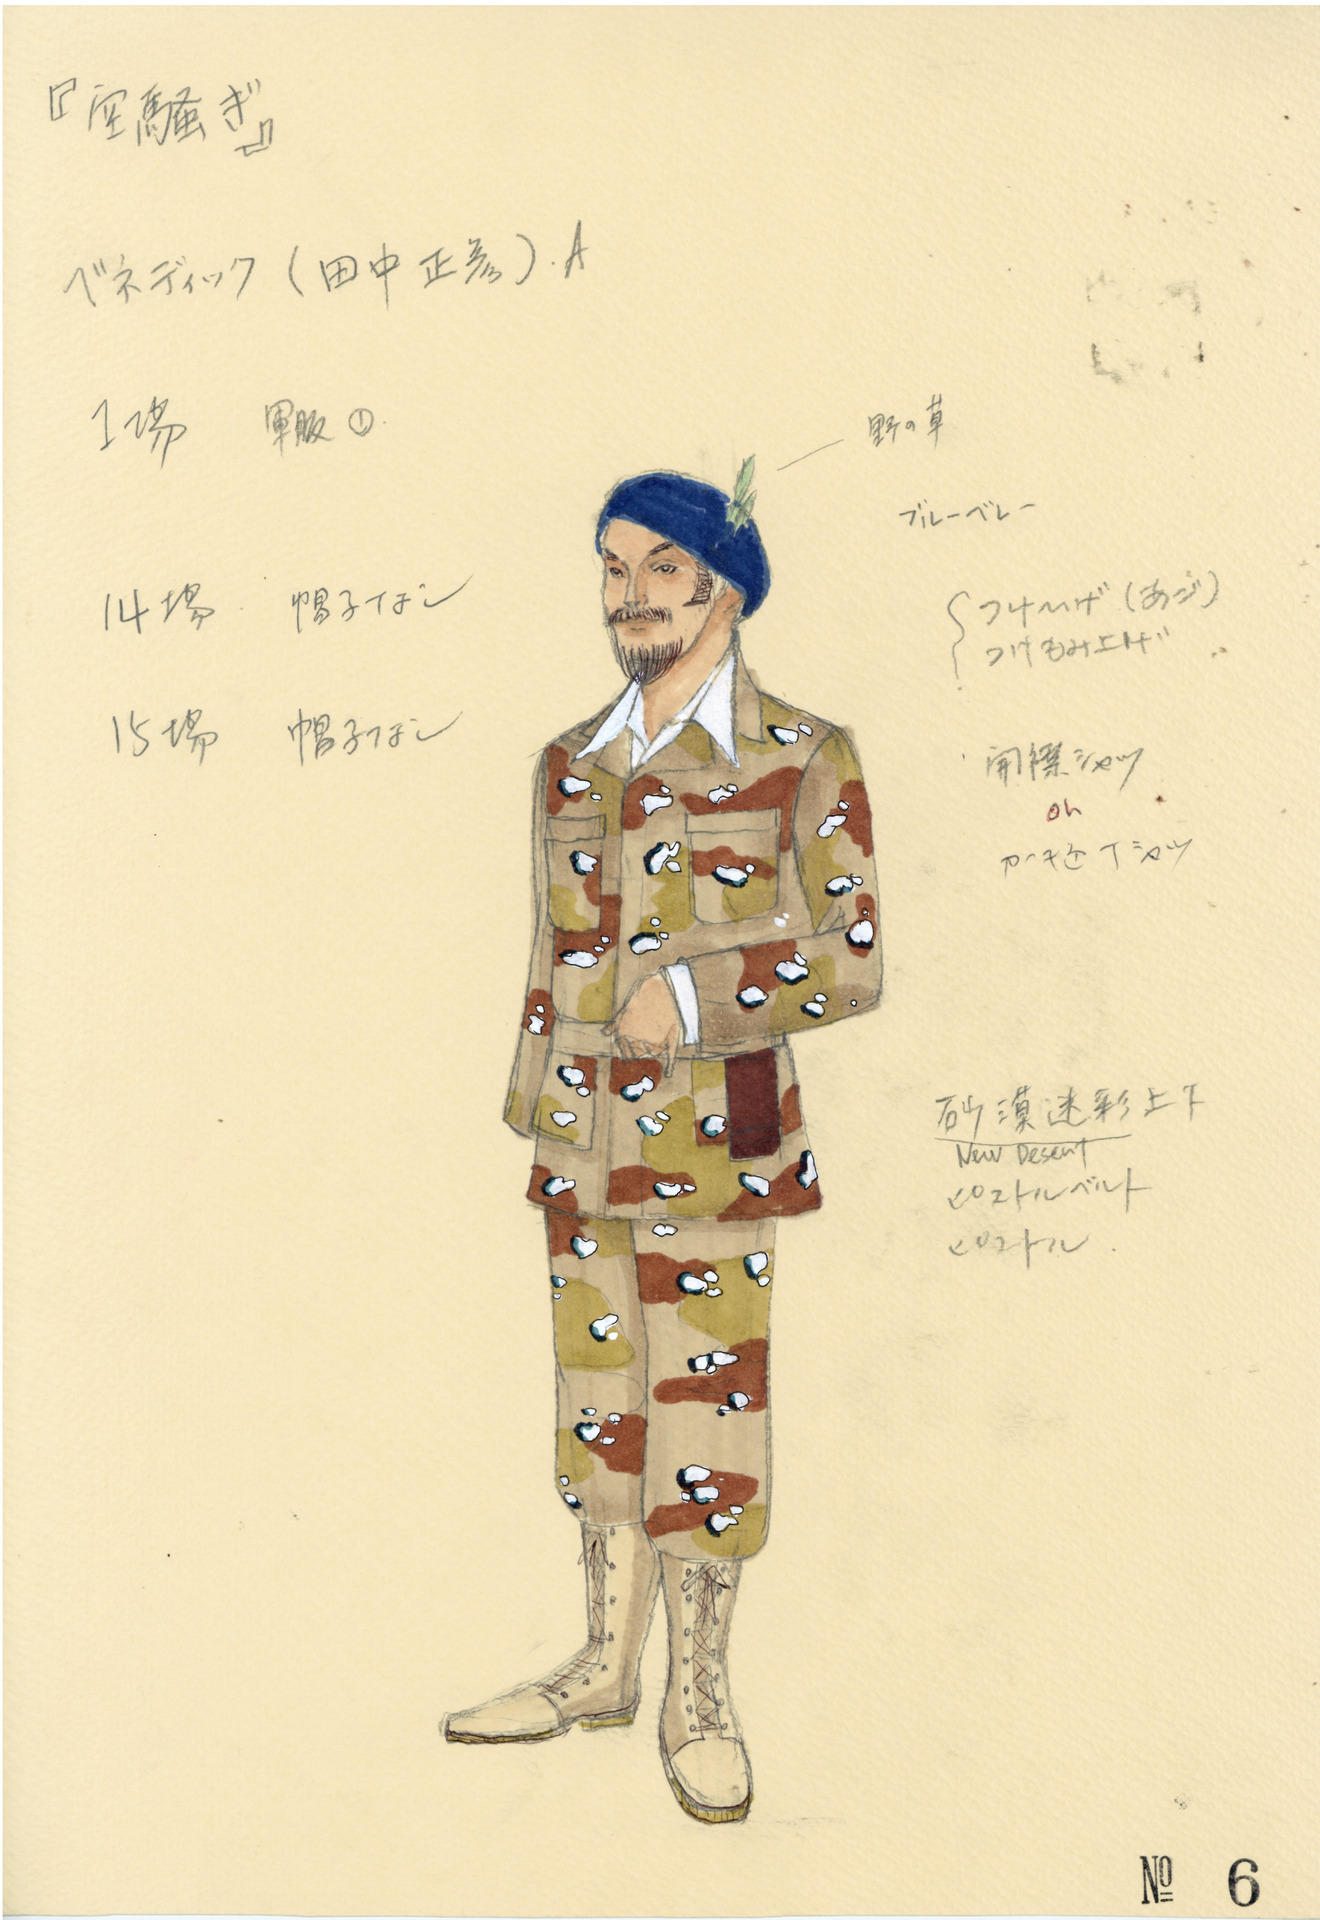 『空騒ぎ』
ベネディック(田中正彦).A
1場 軍服①
14場 帽子なし
15場 帽子なし
野の草
ブルーベレー
つけひげ(あご)
つけもみ上げ
開襟シャツ
or
カーキ色Tシャツ
砂漠迷彩上下
New Desert
ピストルベルト
ピストル
№ 6